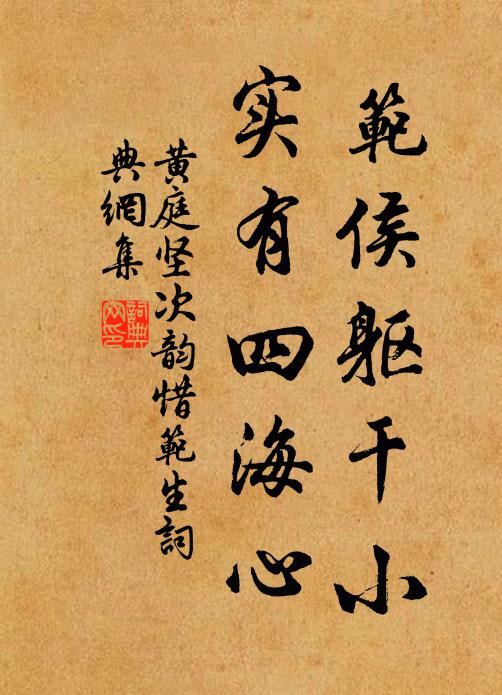 範侯躯干小
实有四海心
黄庭坚次韵惜範生詞
典網集
詞典
网印